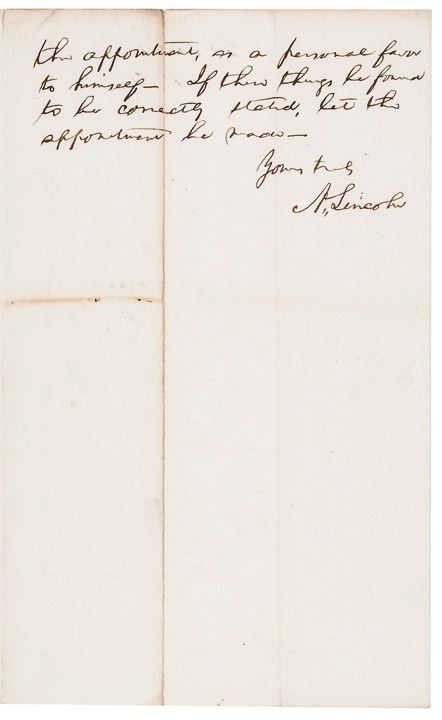 the appointment, as a personal favor
to himself— If these things be found
to be correctly stated, let the
appointment be made—
Yours truly
A. Lincoln